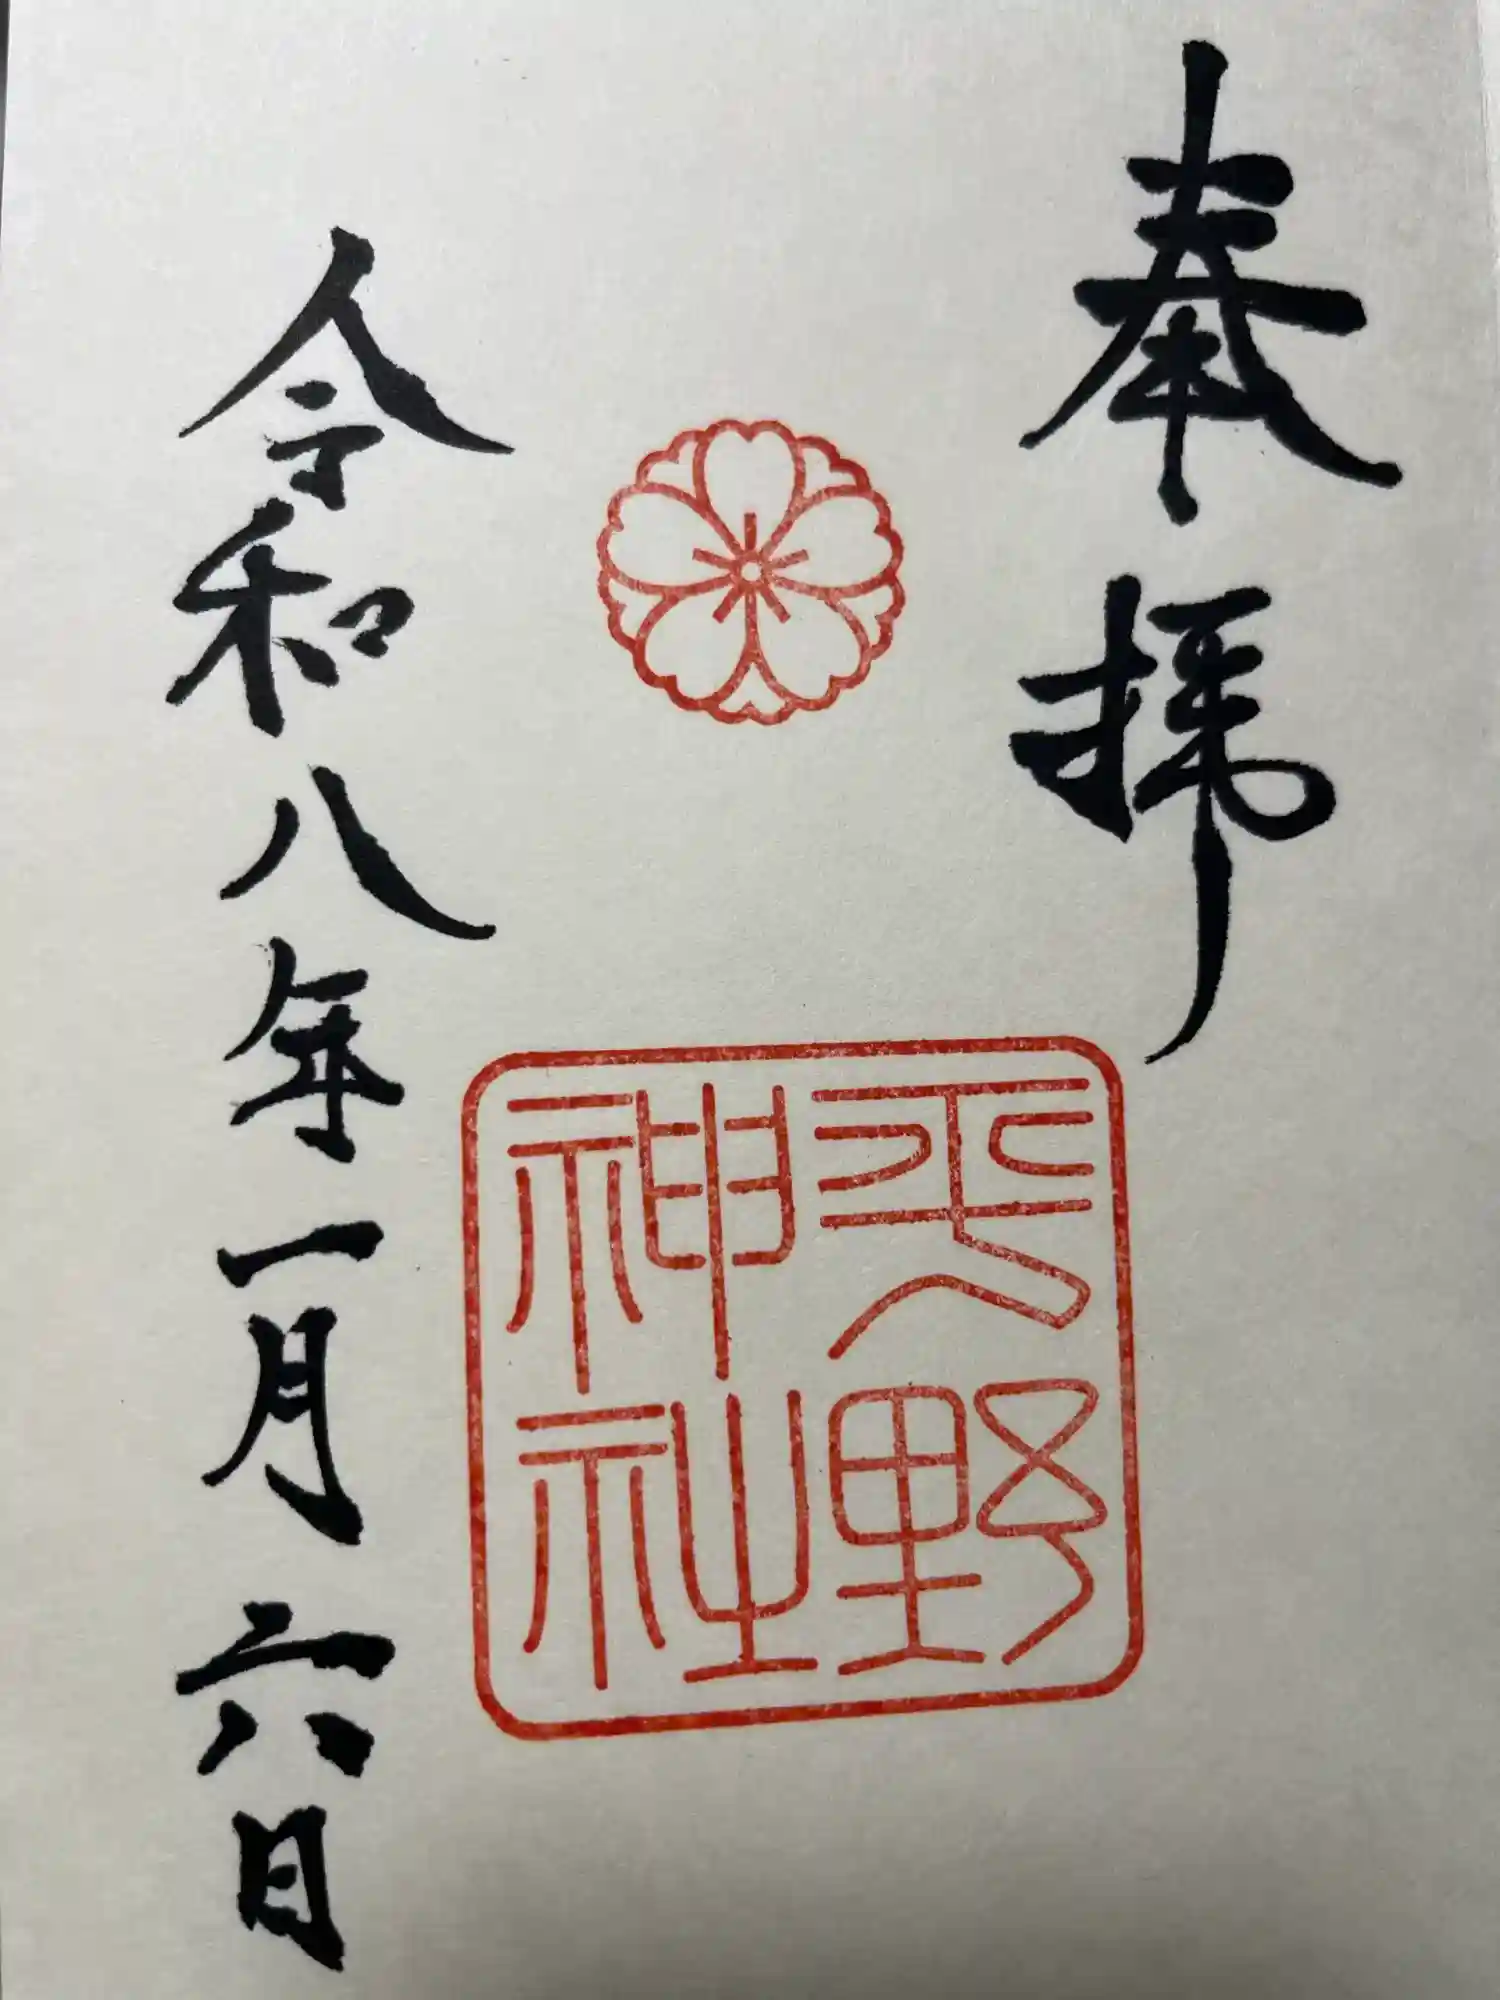 奉拝
平野
神社
令和八年一月六日